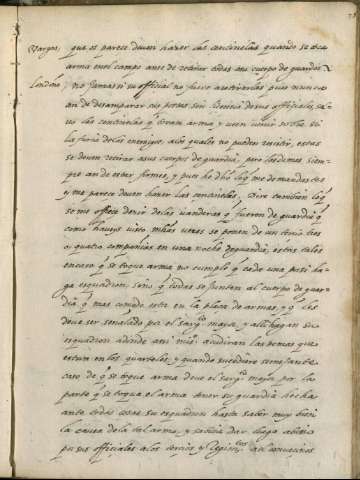 Vargas. que os parece deuen hazer las centinelas quando se toca
arma en el campo antes de retirar todas a su cuerpo de guardia
Londoño. no jamas si su official no fuere a retirarlas pues nunca
an de desamparar sus postas sin licencia de sus officiales, sal
uo las centinelas que tocan arma y uen uenir sobre si
la furia de los enemigos, a los quales no pueden resistir, estas
se deuen retirar a su cuerpo de guardia, pero las demas siem
pre an de estar firmes, y pues he dho lo que me demandastes
y me parece deuen hazer las centinelas, dire tambien lo que
se me offrece dezir de las vanderas que fueren de guardia que
como haueys uisto muchas uezes se ponen de un tercio tres
o quatro companias en una noche de guardia, estas tales
en caso que se toque arma no cumple que cada una por si ha
ga esquadron sino que todas se junten al cuerpo de guar
dia que mas comodo este en la plaza de armas, y que les
deue ser señalado por el sargto mayor y alli hagan su
esquadron adonde assi mismo acudiran las demas que
estan en los quarteles, y quando sucediere semejante
caso de que se toque arma deue el sargto mayor por la
parte que se toque el arma tener su guardia hecha
ante todas cosas su esquadron hasta saber muy bien
la causa de la tal arma, y deuia dar luego auiso
por sus officiales a los tercios y Regimtos a el conuezinos